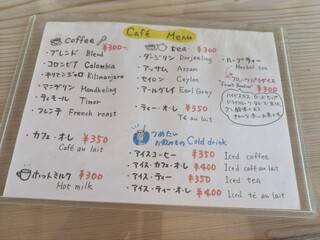 Café Menu
coffee ¥300〜
・ブレンド Blend
・コロンビア Colombia
・キリマンジャロ Kilimanjaro
・マンデリン Mandheling
・ティモール Timor
・フレンチ French roast
・カフェ・オ・レ ¥350
Café au lait
ホットミルク ¥300
Hot milk
tea ¥300
・ダージリン Darjeeling
・アッサム Assam
・セイロン Ceylon
・アールグレイ Earl Gray
・ティー・オ・レ ¥350
Té au lait
つめたい
お飲みもの Cold drink
・アイスコーヒー ¥350 Iced coffee
・アイス・カフェ・オ・レ ¥400 Iced café au lait
・アイス・ティー ¥350 Iced tea
・アイス・ティー・オ・レ ¥400 Iced té au lait
・ハーブティー
Herbal tea
フルーツパラダイス
¥300
ハイビスカス